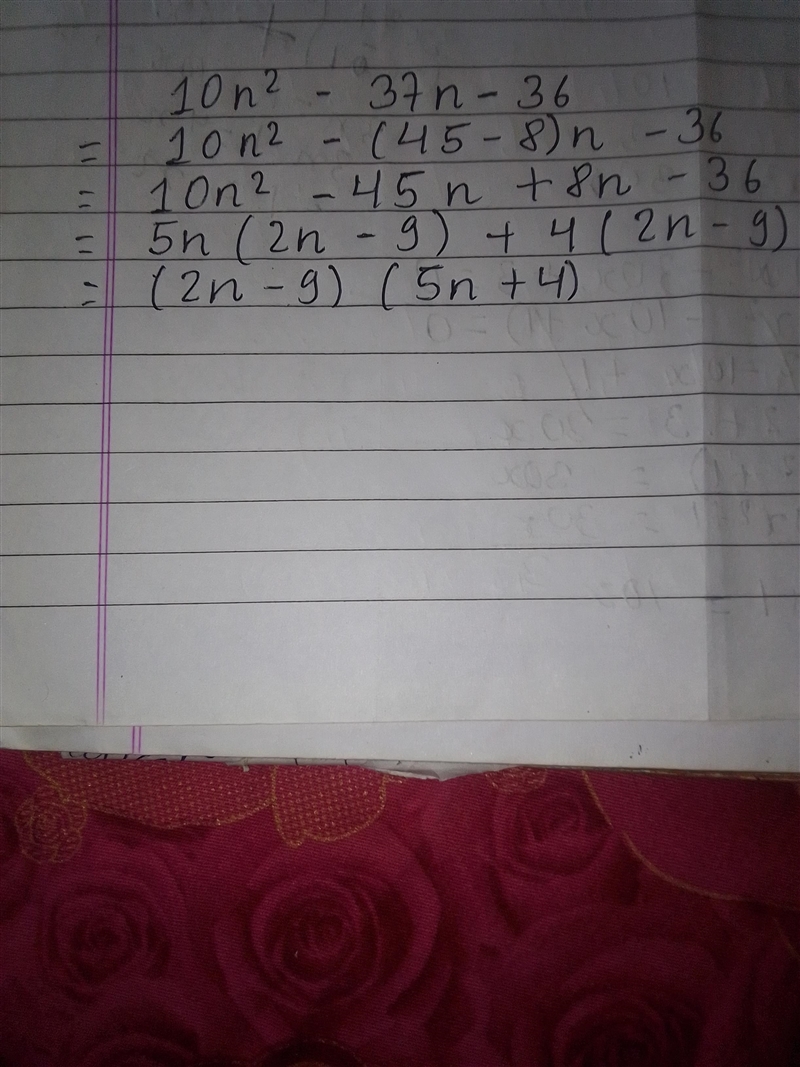 10n² - 37n - 36
= 10n² - (45 - 8)n - 36
= 10n² - 45n + 8n - 36
= 5n (2n - 9) + 4 (2n - 9)
= (2n - 9) (5n + 4)